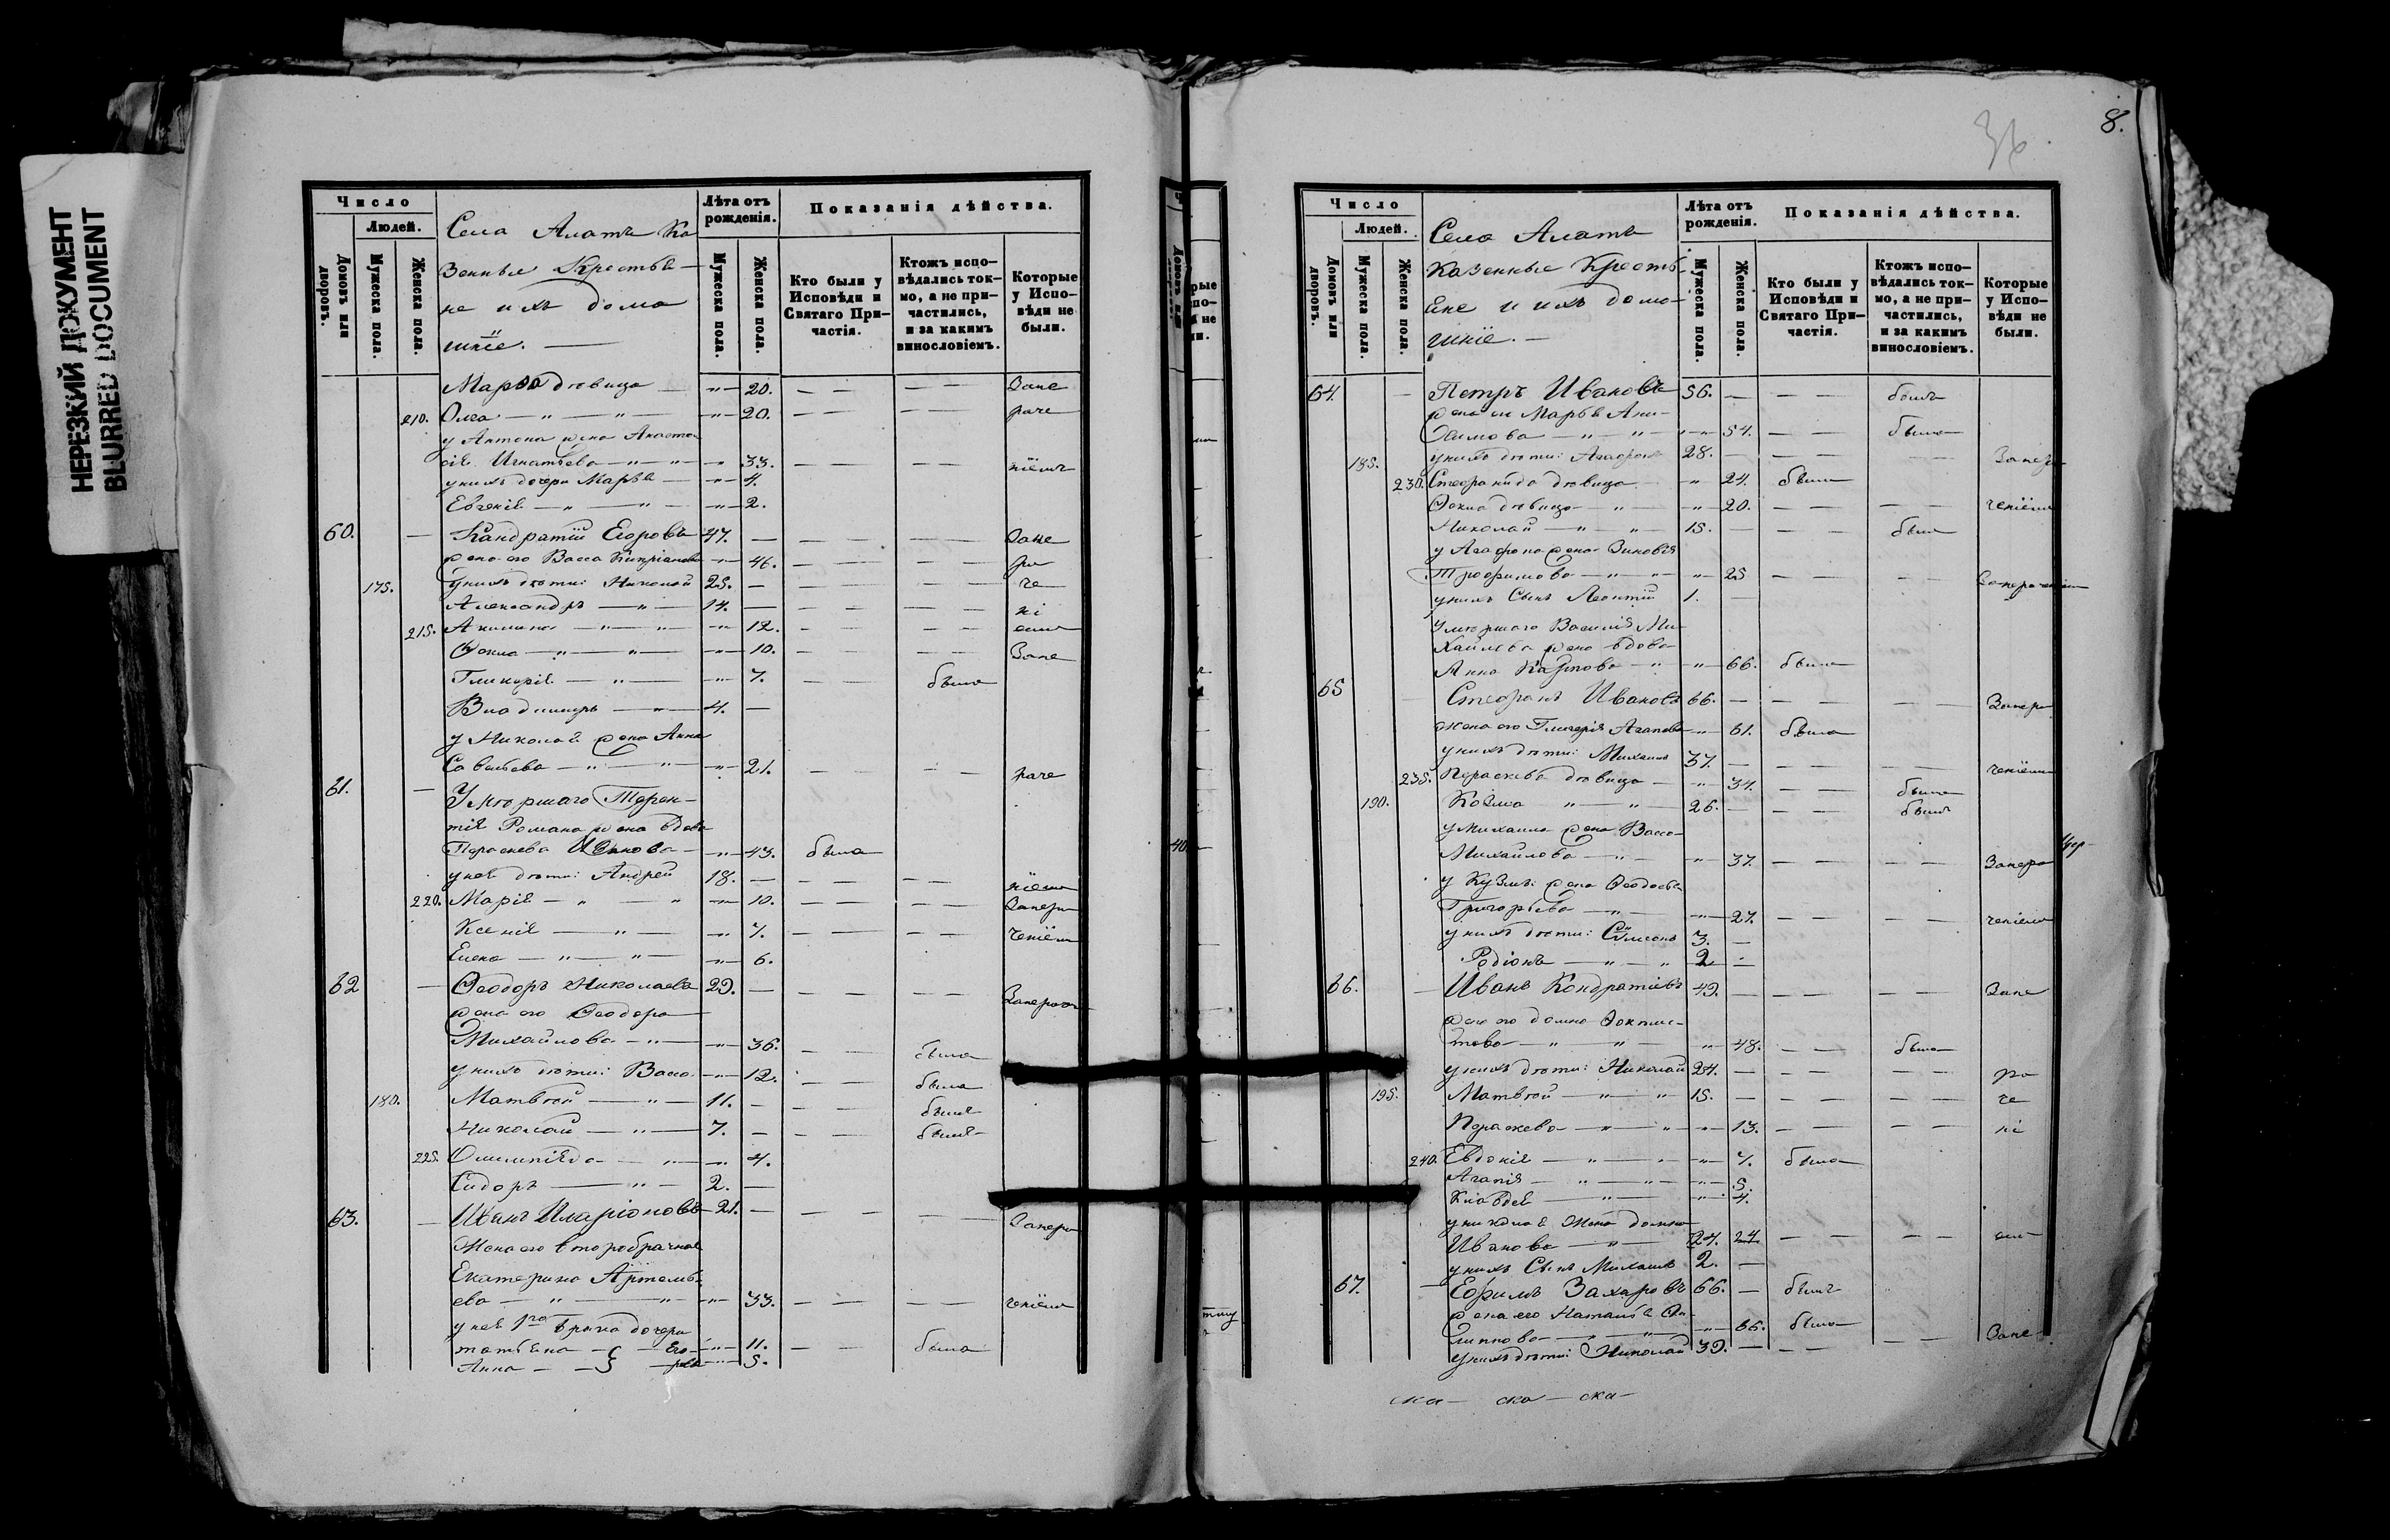 НЕРЕЗКИЙ ДОКУМЕНТ
BLURRED DOCUMENT
Число
Людей.
Домовъ или дворовъ.
Мужеска пола.
Женска пола.
Села Алатъ Ка
зенные Крестья—
не и ихъ дома
шніе.
Лѣта отъ рожденія.
Мужеска пола.
Женска пола.
Показанія дѣйства.
Кто были у Исповѣди и Святаго При—частія.
Ктожъ испо—вѣдались ток—мо, а не при—частились, и за какимъ винословіемъ.
Которые у Испо—вѣди не были.
Марѳа дѣвица — 20. — Запе
210. Олга — " — " — 20. — раче
у Антона жена Анаста
сія Игнатьева — " — 33. — ніемъ
у нихъ дочери Марья — 4.
Евгенія — " — " — 2.
60. — Кандратій Егоровъ 47. — Запе
жена его Васса Кипріанова — 46. — ра
175. у нихъ дѣти: Николай 25. — че
Александръ — " — 14. — ні
215. Акилина — " — " — 12. — емъ
Ѳекла — " — " — 10. — Запе
Гликерія — " — 7. — была
Владимиръ — " — 4. —
у Николая жена Анна
Савельева — " — " — 21. — раче
61. — Умершаго Терен—
тія Романа жена вдова
Параскева Иванова — 43. была
у нея дѣти: Андрей 18. — ніемъ
220. Марія — " — " — 10. — Запера
Ксенія — " — 7. — ченіемъ
Елена — " — " — 6.
62 — Ѳеодоръ Николаевъ 29. — Заперато
жена его Ѳеодора
Михайлова — " — 36. — была
у нихъ дѣти: Васса — 12. — была
180. Матвѣй — " — 11. — былъ
Николай — " — 7. — былъ
225. Олимпіяда — " — 4.
Сидоръ — " — 2. —
63. — Иванъ Иларіоновъ 21. — Запера
Жена его второбрачная
Екатерина Артемь—
ева — " — " — 33. — ченіемъ
у нея 1го брака дочери
татьяна — Его — 11. — была
Анна — рова — 5.
8.
36
Число
Людей.
Домовъ или дворовъ.
Мужеска пола.
Женска пола.
Села Алатъ
Казенные Кресть—
яне и ихъ дома—
шніе. —
Лѣта отъ рожденія.
Мужеска пола.
Женска пола.
Показанія дѣйства.
Кто были у Исповѣди и Святаго При—частія.
Ктожъ испо—вѣдались ток—мо, а не при—частились, и за какимъ винословіемъ.
Которые у Испо—вѣди не были.
64. — Петръ Ивановъ 56. — былъ
жена его Марья Аки—
димова — " — " — 54. — была
185. у нихъ дѣти: Агафонъ 28. — Запера
230. Стефанида дѣвица — " 24. была
Ѳекла дѣвица — " — " 20. — ченіемъ
Николай — " — " 15. — былъ
у Агафона жена Зиновія
Трофимова — " — " 25 — Запераченіемъ
у нихъ Сынъ Леонтій 1. —
Умершаго Василія Ми—
хайлова жена вдова
Анна Карпова — " — 66. была
65 — Стефанъ Ивановъ 66. — Запера
жена его Гликерія Агапова — 61. была
у нихъ дѣти: Михаилъ 37. — ченіемъ
235. Параскева дѣвица — " 34. — была
190. Козма " — " 26. — былъ
у Михаила жена Васса
Михайлова — " — 37. — Запера
у Кузмы жена Ѳеодосья
Григорьева — " — 27. — ченіемъ
у нихъ дѣти: Симеонъ 3. —
Родіонъ — " — " 2 —
66. — Иванъ Кондратіевъ 49. — Запе
жена его Домна Ѳоктис—
това — " — " — 48. — была
у нихъ дѣти: Николай 24. — ра
195. Матвѣй — " — " 15. — че
Параскева — " — " 13. — ні
240. Евдокія — " — " 7. была
Агапія — " — " 5.
Клавдія — " — " 4.
у николая Жена домна
Иванова — " — 24. 24 — емъ
у нихъ Сынъ Михаилъ 2. —
67. — Ефимъ Захаровъ 66. — былъ
жена его Наталья Фи—
липпова — " — 66. была
у нихъ дѣти: Николай 39. — Запе
ска — ска — ска —